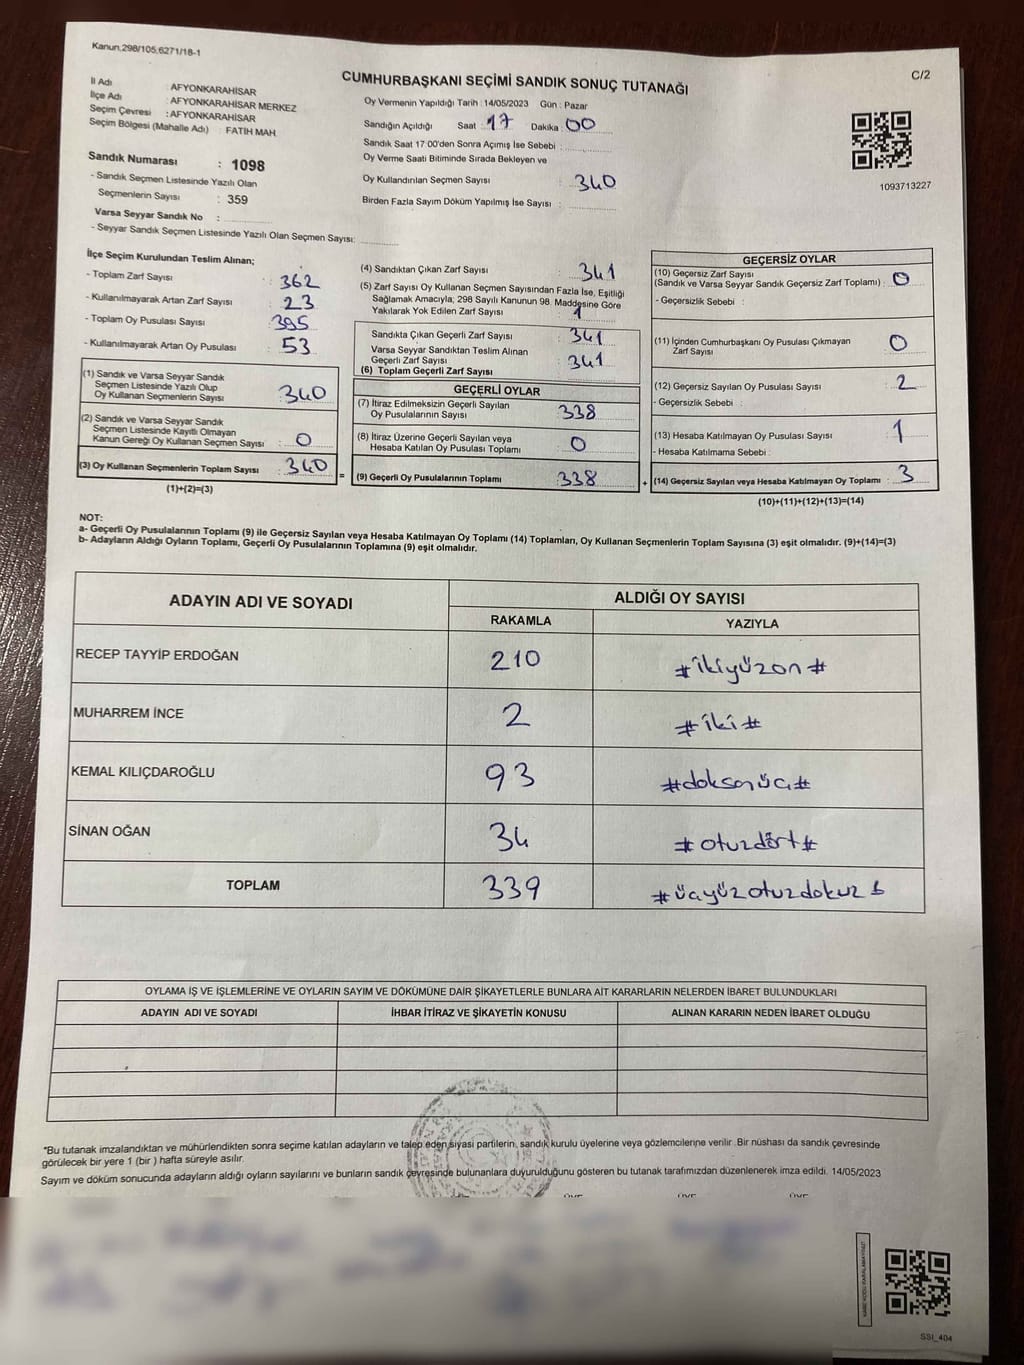 Kanun,298/105;6271/18-1
C/2
CUMHURBAŞKANI SEÇİMİ SANDIK SONUÇ TUTANAĞI
İl Adı : AFYONKARAHİSAR
İlçe Adı : AFYONKARAHİSAR MERKEZ
Seçim Çevresi : AFYONKARAHİSAR
Seçim Bölgesi (Mahalle Adı) : FATİH MAH.
Sandık Numarası : 1098
- Sandık Seçmen Listesinde Yazılı Olan
Seçmenlerin Sayısı : 359
Varsa Seyyar Sandık No :
- Seyyar Sandık Seçmen Listesinde Yazılı Olan Seçmen Sayısı:
Oy Vermenin Yapıldığı Tarih : 14/05/2023 Gün : Pazar
Sandığın Açıldığı Saat : 17 Dakika : 00
Sandık Saat 17:00'den Sonra Açımış İse Sebebi :
Oy Verme Saati Bitiminde Sırada Bekleyen ve
Oy Kullandırılan Seçmen Sayısı : 340
Birden Fazla Sayım Döküm Yapılmış İse Sayısı :
1093713227
İlçe Seçim Kurulundan Teslim Alınan;
- Toplam Zarf Sayısı : 362
- Kullanılmayarak Artan Zarf Sayısı : 23
- Toplam Oy Pusulası Sayısı : 395
- Kullanılmayarak Artan Oy Pusulası : 53
(1) Sandık ve Varsa Seyyar Sandık
Seçmen Listesinde Yazılı Olup
Oy Kullanan Seçmenlerin Sayısı : 340
(2) Sandık ve Varsa Seyyar Sandık
Seçmen Listesinde Kayıtlı Olmayan
Kanun Gereği Oy Kullanan Seçmen Sayısı : 0
(3) Oy Kullanan Seçmenlerin Toplam Sayısı : 340
(1)+(2)=(3)
(4) Sandıktan Çıkan Zarf Sayısı : 341
(5) Zarf Sayısı Oy Kullanan Seçmen Sayısından Fazla İse, Eşitliği
Sağlamak Amacıyla; 298 Sayılı Kanunun 98. Maddesine Göre
Yakılarak Yok Edilen Zarf Sayısı : 1
Sandıkta Çıkan Geçerli Zarf Sayısı : 341
Varsa Seyyar Sandıktan Teslim Alınan
Geçerli Zarf Sayısı : 341
(6) Toplam Geçerli Zarf Sayısı
GEÇERLİ OYLAR
(7) İtiraz Edilmeksizin Geçerli Sayılan
Oy Pusulalarının Sayısı : 338
(8) İtiraz Üzerine Geçerli Sayılan veya
Hesaba Katılan Oy Pusulası Toplamı : 0
= (9) Geçerli Oy Pusulalarının Toplamı : 338 +
GEÇERSİZ OYLAR
(10) Geçersiz Zarf Sayısı
(Sandık ve Varsa Seyyar Sandık Geçersiz Zarf Toplamı) : 0
- Geçersizlik Sebebi :
(11) İçinden Cumhurbaşkanı Oy Pusulası Çıkmayan
Zarf Sayısı : 0
(12) Geçersiz Sayılan Oy Pusulası Sayısı : 2
- Geçersizlik Sebebi :
(13) Hesaba Katılmayan Oy Pusulası Sayısı : 1
- Hesaba Katılmama Sebebi :
(14) Geçersiz Sayılan veya Hesaba Katılmayan Oy Toplamı : 3
(10)+(11)+(12)+(13)=(14)
NOT:
a- Geçerli Oy Pusulalarının Toplamı (9) ile Geçersiz Sayılan veya Hesaba Katılmayan Oy Toplamı (14) Toplamları, Oy Kullanan Seçmenlerin Toplam Sayısına (3) eşit olmalıdır. (9)+(14)=(3)
b- Adayların Aldığı Oyların Toplamı, Geçerli Oy Pusulalarının Toplamına (9) eşit olmalıdır.
ADAYIN ADI VE SOYADI ALDIĞI OY SAYISI
RAKAMLA YAZIYLA
RECEP TAYYİP ERDOĞAN 210 #ikiyüzon#
MUHARREM İNCE 2 #iki#
KEMAL KILIÇDAROĞLU 93 #doksanüç#
SİNAN OĞAN 34 #otuzdört#
TOPLAM 339 #üçyüzotuzdokuz
OYLAMA İŞ VE İŞLEMLERİNE VE OYLARIN SAYIM VE DÖKÜMÜNE DAİR ŞİKAYETLERLE BUNLARA AİT KARARLARIN NELERDEN İBARET BULUNDUKLARI
ADAYIN ADI VE SOYADI İHBAR İTİRAZ VE ŞİKAYETİN KONUSU ALINAN KARARIN NEDEN İBARET OLDUĞU
*Bu tutanak imzalandıktan ve mühürlendikten sonra seçime katılan adayların ve talep eden siyasi partilerin, sandık kurulu üyelerine veya gözlemcilerine verilir. Bir nüshası da sandık çevresinde
görülecek bir yere 1 (bir ) hafta süreyle asılır.
Sayım ve döküm sonucunda adayların aldığı oyların sayılarını ve bunların sandık çevresinde bulunanlara duyurulduğunu gösteren bu tutanak tarafımızdan düzenlenerek imza edildi. 14/05/2023
SSI_404